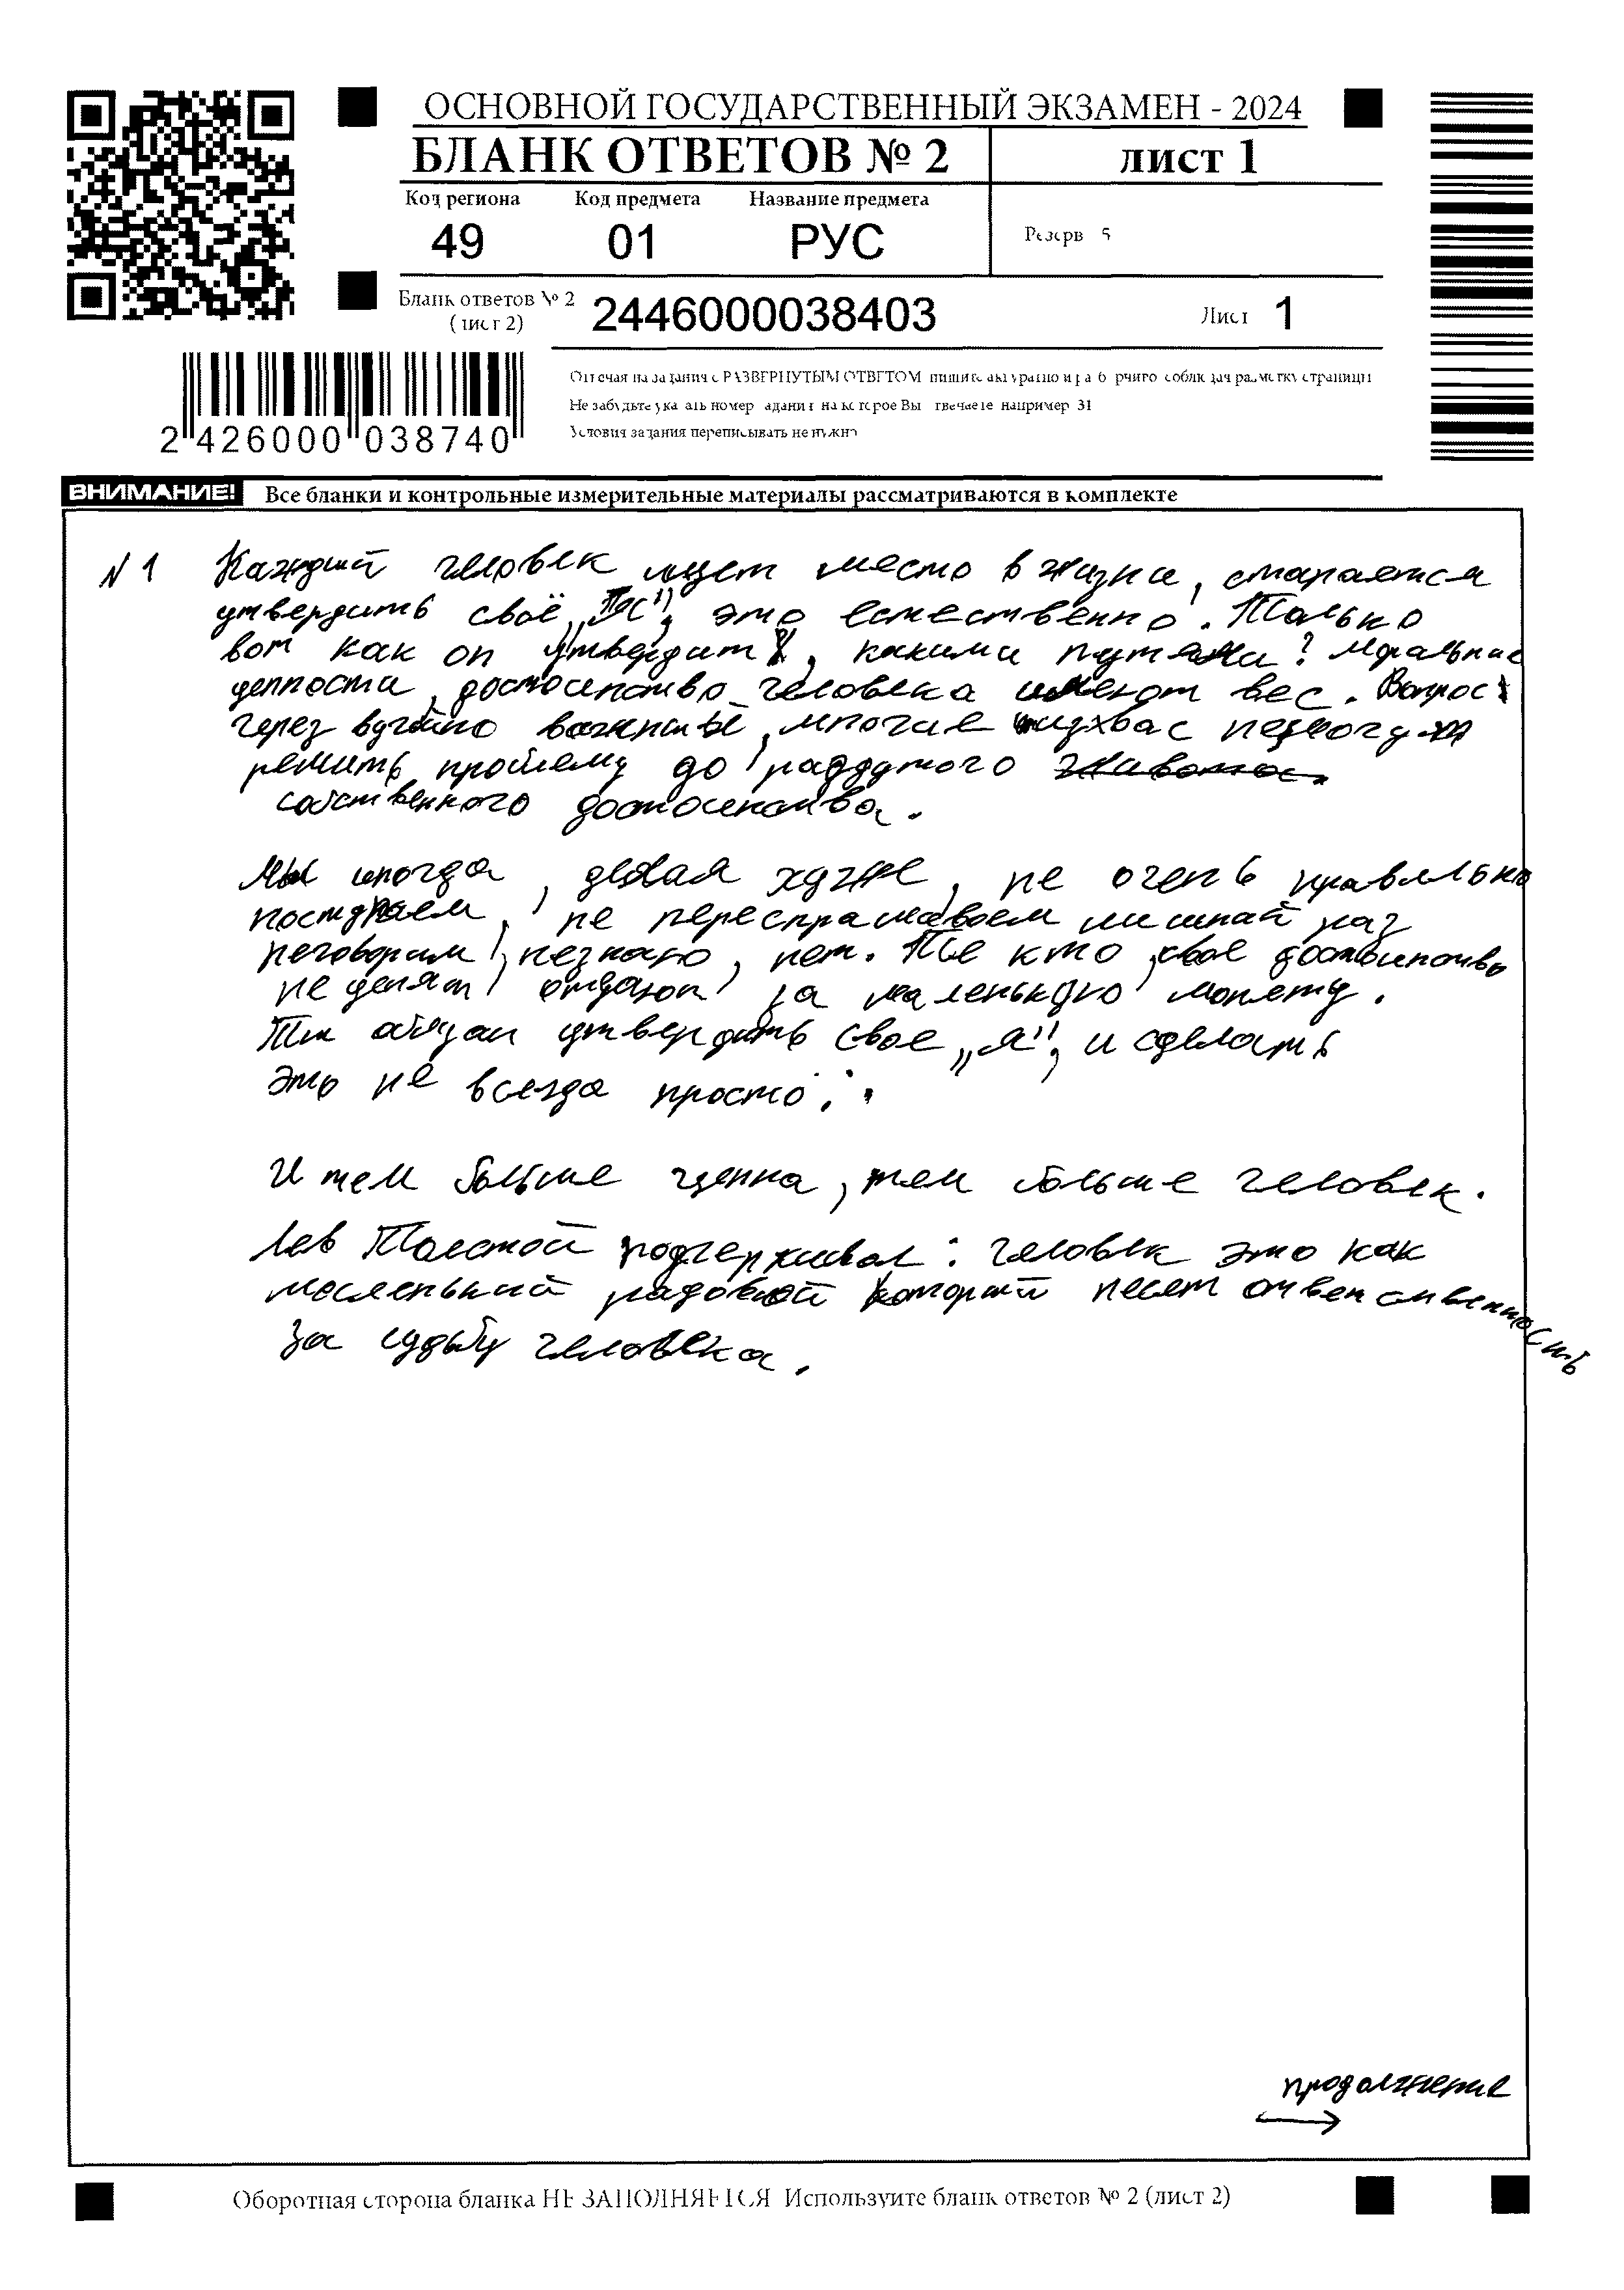 ОСНОВНОЙ ГОСУДАРСТВЕННЫЙ ЭКЗАМЕН - 2024
БЛАНК ОТВЕТОВ № 2
ЛИСТ 1
Код региона Код предмета Название предмета
49 01 РУС
Резерв 5
Бланк ответов № 2
(лист 2)
2446000038403
Лист 1
2 426000 038740
Отвечая на задания с РАЗВЕРНУТЫМ ОТВЕТОМ пишите аккуратно и разборчиво соблюдая разметку страницы
Не забудьте указать номер задания на которое Вы отвечаете например 31
Условия задания переписывать не нужно
ВНИМАНИЕ! Все бланки и контрольные измерительные материалы рассматриваются в комплекте
N 1 Каждый человек ищет место в жизни, старается
утвердить своё это естественно. Только
вот как он утвердит, какими путями? Моральные
ценности, достоинство человека имеют вес. Вопрос
через важный, многие из вас не могут
решить проблему до раздутого
собственного достоинства.
Мы иногда, делая хуже, не очень правильно
поступаем, не переспрашиваем лишний раз
неговорим, незнаю, нет. Те кто свое достоинство
не ценят отдают за маленькую монету.
Ты обязан утвердить свое „я", и сделать
это не всегда просто.
И тем больше ценна, тем больше человек.
Лев Толстой подчерживал: человек это как
масленький рядовой который несет отвенственность
за судьбу человека.
продолжение
→
Оборотная сторона бланка НЕ ЗАПОЛНЯЕТСЯ Используите бланк ответов № 2 (лист 2)